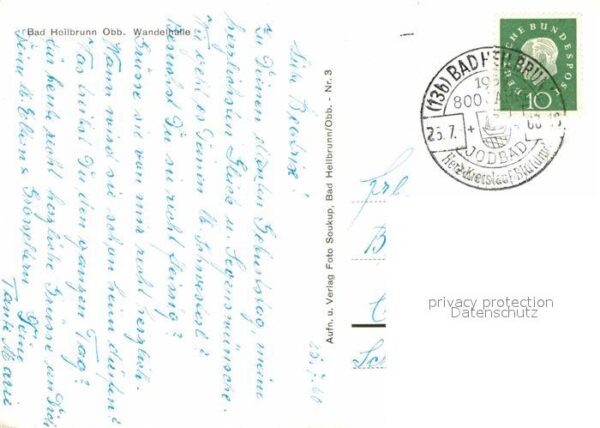 Bad Heilbrunn Obb. Wandelhalle
25.7.60
Liebe Beatrix!
Zu Deinem Geburtstag, meine
herzlichsten Glück u. Segenswünsche.
Wie geht es Deiner
Besuchst Du sie recht fleissig?
Grüsse sie von mir recht herzlich.
Wann wird sie schon heim dürfen?
Was treibst Du den ganzen Tag?
Für heute recht herzliche Grüsse an Dich
Deine lb. Eltern u. Grosseltern Deine
Tante Marie
Aufn. u. Verlag Foto Soukup, Bad Heilbrunn/Obb. - Nr. 3
DEUTSCHE BUNDESPOST
10
(13b) BAD HEILBRUNN
800
25.7.
60-18
JODBAD
Herz Kreislauf Blutdruck
privacy protection
Datenschutz